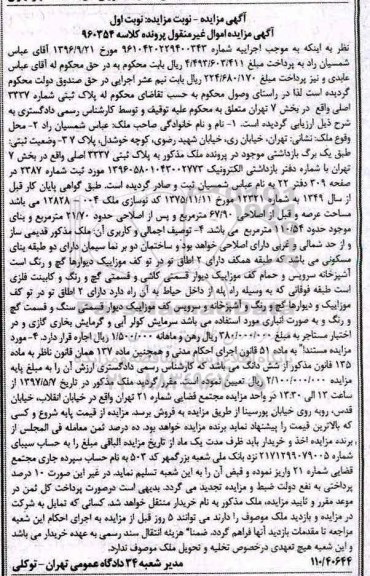 آگهی مزایده - نوبت مزایده: نوبت اول
آگهی مزایده اموال غیرمنقول پرونده کلاسه ۹۶۰۳۵۴
نظر به اینکه به موجب اجراییه شماره ۹۶۱۰۴۲۰۲۲۹۴۰۰۳۴۳ مورخ ۱۳۹۶/۹/۲۱ آقای عباس
شمسیان راد به پرداخت مبلغ ۴/۴۹۳/۶۰۳/۴۱۱ ریال بابت محکوم به در حق محکوم له آقای عباس
عابدی و نیز پرداخت مبلغ ۲۲۴/۶۸۰/۱۷۰ ریال بابت نیم عشر اجرایی در حق صندوق دولت محکوم
گردیده است لذا در راستای وصول محکوم به حسب تقاضای محکوم له پلاک ثبتی شماره ۳۳۳۷
اصلی واقع در بخش ۷ تهران متعلق به محکوم علیه توقیف و توسط کارشناس رسمی دادگستری به
شرح ذیل ارزیابی گردیده است. ۱- نام و نام خانوادگی صاحب ملک: عباس شمسیان راد ۲- محل
وقوع ملک: نشانی: تهران، خیابان ری، خیابان شهید رضوی، کوچه خوشدل، پلاک ۷ ۳- وضعیت ثبتی:
طبق یک برگ بازداشتی موجود در پرونده ملک مذکور به پلاک ثبتی ۳۳۳۷ اصلی واقع در بخش ۷
تهران با شماره دفتر بازداشتی الکترونیک ۱۳۹۶۰۵۸۰۱۰۴۳۰۰۲۷۷۳ مورد ثبت شماره ۲۳۸۷ در
صفحه ۳۰۹ دفتر ۲۲ به نام عباس شمسیان ثبت و صادر گردیده است. طبق گواهی پایان کار قبل
از سال ۱۳۴۹ به شماره ۱۲۳۱ مورخ ۱۳۷۵/۱۱/۱۱ کد نوسازی ملک ۰۰۴-۱۲۸۲۸ می باشد
مساحت عرصه و قبل از اصلاحی ۶۷/۹۰ مترمربع و پس از اصلاحی حدود ۲۱/۷۰ مترمربع و بنای
موجود حدود ۱۱۰/۵۴ مترمربع می باشد. ۴- توصیف اجمالی و کاربری آن: ملک مذکور قدیمی ساز
و از حد شمالی و غربی دارای اصلاحی خواهد بود و ساختمان دو بر نما سیمان دارای دو طبقه بنای
مسکونی می باشد که طبقه همکف دارای ۲ اطاق تو در تو کف موزاییک دیوارها گچ و رنگ است
آشپزخانه سرویس و حمام کف موزاییک دیوار قسمتی کاشی و قسمتی گچ و رنگ و کابینت فلزی
است طبقه فوقانی که به وسیله راه پله از داخل حیاط به آن راه دارد دارای ۲ اطاق تو در تو کف
موزاییک و دیوارها گچ و رنگ و آشپزخانه و سرویس کف موزاییک دیوار قسمتی سنگ و قسمت گچ
و رنگ و به صورت انباری مورد استفاده می باشد سرمایش کولر آبی و گرمایش بخاری گازی و در
اختیار مستاجر به مبلغ ۳۸۰/۰۰۰/۰۰۰ ریال رهن و ماهانه ۱/۵۰۰/۰۰۰ ریال اجاره قرار دارد. ۴- مورد
مزایده مستندا به ماده ۵۱ قانون اجرای احکام مدنی و همچنین ماده ۱۳۷ همان قانون ناظر به ماده
۱۳۵ قانون مذکور از شش دانگ می باشد که کارشناس رسمی دادگستری ارزش آن را به مبلغ پایه
مزایده ۲/۱۰۰/۰۰۰/۰۰۰ ریال تعیین نموده است. مقرر گردید ملک مذکور در تاریخ ۱۳۹۷/۵/۷ از
ساعت ۱۲ الی ۱۳:۳۰ در واحد مزایده مجتمع قضایی شماره ۲۱ تهران واقع در خیابان انقلاب، خیابان
قدس، روبه روی خیابان پورسینا از طریق مزایده به فروش برسد. مزایده از قیمت پایه شروع و کسی
که بالاترین قیمت را پیشنهاد نماید برنده مزایده خواهد بود. ده درصد ثمن معامله فی المجلس از
برنده مزایده اخذ و خریدار باید ظرف مدت یک ماه از تاریخ مزایده الباقی مبلغ را به حساب سیبای
شماره ۲۱۷۱۲۹۹۰۷۹۰۰۵ نزد بانک ملی شعبه بزرگمهر کد ۵۰۳ به نام حساب سپرده جاری مجتمع
قضایی شماره ۲۱ واریز نموده و قبض آن را به این شعبه تسلیم نماید. در غیر این صورت ۱۰ درصد
پرداختی به نفع دولت ضبط و مزایده تجدید می گردد. بدیهی است درصورت پرداخت کل ثمن در
موعد مقرر و تایید مزایده، ملک مذکور به نام خریدار منتقل خواهد شد. کسانی که تمایل به شرکت
در مزایده و بازدید ملک موصوف را دارند می توانند ۵ روز قبل از مزایده به اجرای احکام این شعبه
مراجعه تا مقدمات بازدید آنها فراهم گردد. ضمنا هزینه انتقال سند رسمی به عهده خریدار می باشد
و این شعبه هیچ تعهدی درخصوص تخلیه و تحویل ملک موصوف ندارد.
۱۱۰/۴۰۶۴۴ مدیر شعبه ۳۴ دادگاه عمومی تهران - توکلی